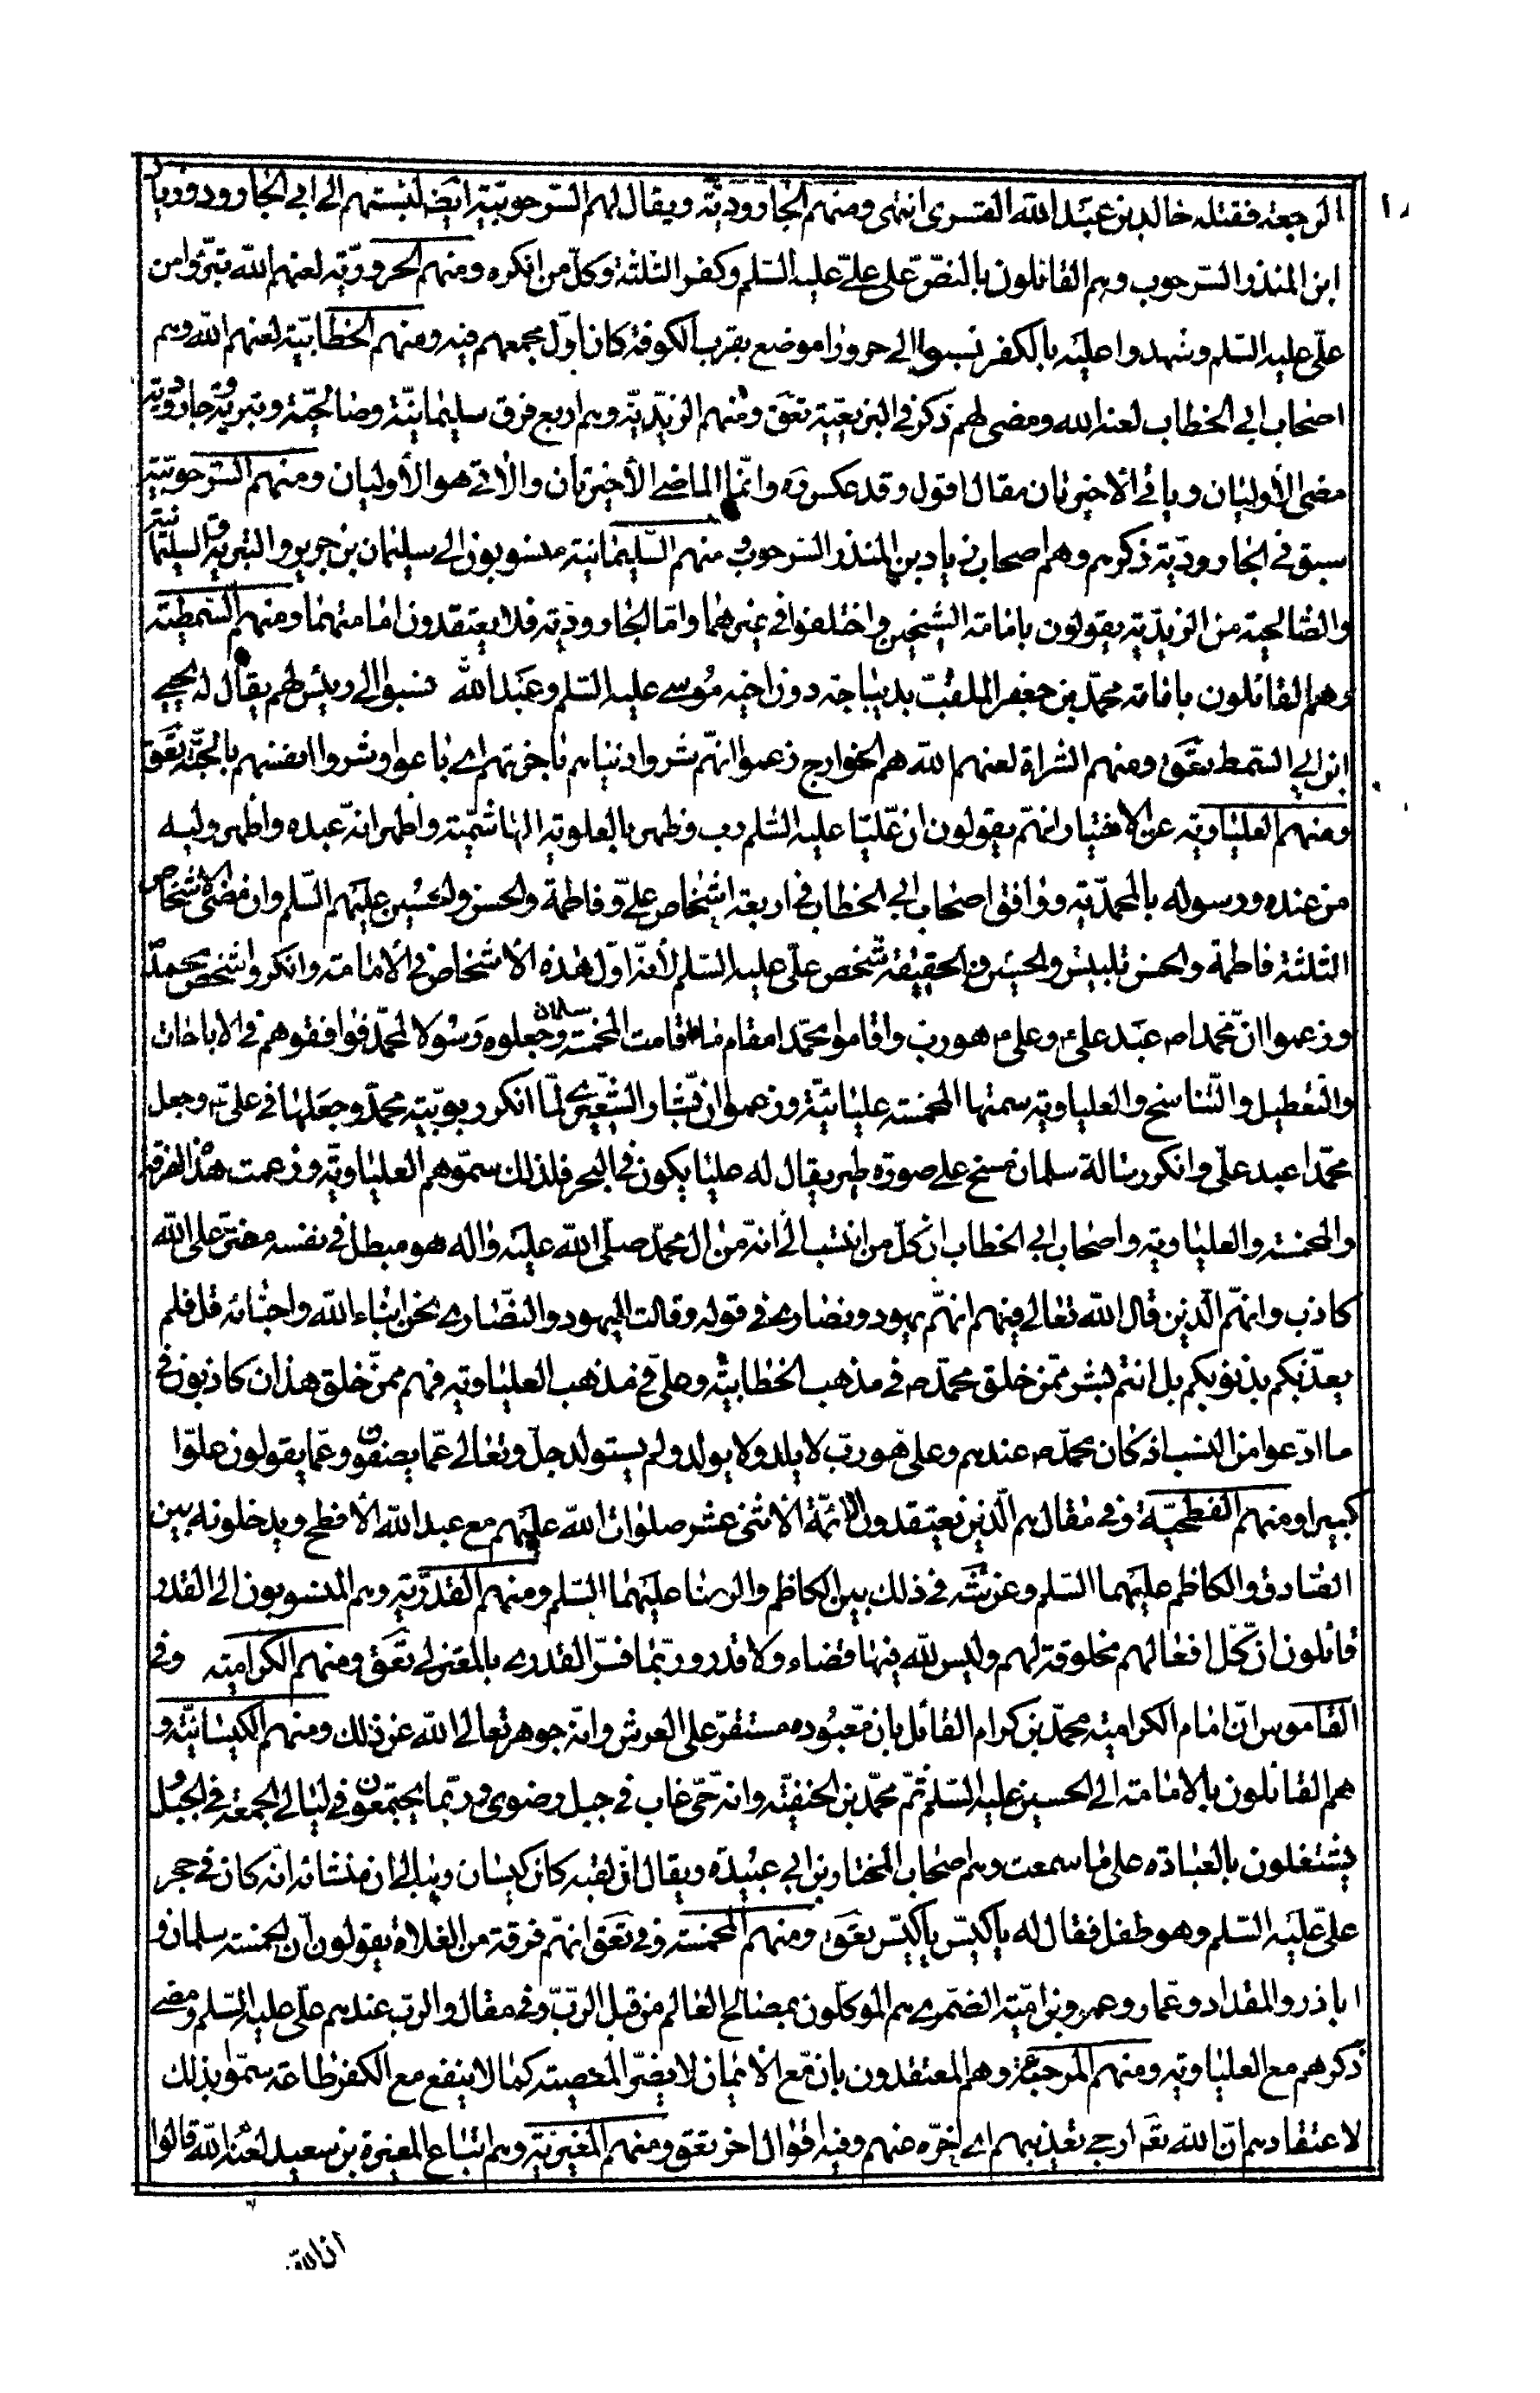 الرجعة فقتله خالد بن عبد الله القسرى انتهى ومنهم الجاروديّة ويقال لهم السّرحوبيّة ايضا لنسبتهم الى ابى الجارود زياد
ابن المنذر السّرحوب وهم القائلون بالنصّ على علىّ عليه السّلم وكفر الثلثة وكلّ من انكره ومنهم الحروريّة لعنهم الله تبرّؤا من
علىّ عليه السّلم وشهدوا عليه بالكفر نسبوا الى حرورا موضع بقرب الكوفة كان اوّل مجمعهم فيه ومنهم الخطّابيّة لعنهم الله وهم
اصحاب ابى الخطاب لعنه الله ومضى لهم ذكر فى البزيعيّة تعق ومنهم الزيديّة وهم اربع فرق سليمانيّة وصالحيّة وتبريّة وجاروديّة
مضى الأوليان وياتى الأخيرتان مقال اقول وقد عكس ره وانّما الماضى الأخيرتان والأتى هو الأوليان ومنهم السّرحوبيّة
سبق فى الجاروديّة ذكرهم وهم اصحاب زياد بن المنذر السّرحوب ومنهم السّليمانية منسوبون الى سليمان بن جرير والتبرية والسليمانية
والصّالحية من الزيديّة يقولون بامامة الشيخين واختلفوا فى غيرهما وامّا الجاروديّة فلا يعتقدون امامتهما ومنهم السّمطية
وهم القائلون بامامة محمّد بن جعفر الملقب بديباجة دون اخيه موسى عليه السّلم وعبد الله نسبوا الى رئيس لهم يقال له يحيى
ابن ابى السّمط تعق ومنهم الشراة لعنهم الله هم الخوارج زعموا انهّم شروا دنياهم باخرتهم اى باعوا وشروا انفسهم بالجنّة تعق
ومنهم العلياوية عن الاختيار انهّم يقولون انّ عليّا عليه السّلم رب وظهر بالعلوية الهاشميّة واظهر انّه عبده واظهر وليه
من عنده ورسوله بالمحمّدية ووافق اصحاب ابى الخطاب فى اربعة اشخاص علىّ وفاطمة والحسن والحسين عليهم السّلم وان معنى الاشخاص
الثلثة فاطمة والحسن والحسين تلبيس وفى الحقيقة شخص علىّ عليه السّلم لأنّه اوّل هذه الأشخاص فى الأمامة وانكروا شخص محمّد
وزعموا انّ محمّدا ص عبد علىّ ع وعلى ع هو رب واقاموا محمّدا مقام ما اقامت المخمسة سلمان وجعلوه رسولا لمحمّد فوافقوهم فى الاباحات
والتّعطيل والتّناسخ والعلياوية سمتها المخمسة عليائيّة وزعموا انّ بشّار الشّعيرى لمّا انكر ربوبيّة محمّد وجعلها فى علىّ ع وجعل
محمّدا عبد علىّ وانكر رسالة سلمان مسخ على صورة طير يقال له عليا يكون فى البحر فلذلك سمّوهم العلياويّة وزعمت هذه الفرقة
والمخمسة والعلياوية واصحاب ابى الخطاب انّ كلّ من انتسب الى انّه من ال محمّد صلّى الله عليه واله هو مبطل فى نفسه مفتر على الله
كاذب وانهّم الّذين قال الله تعالى فيهم انهّم يهود ونصارى فى قوله وقالت اليهود والنّصارى نحن ابناء الله واحبّائه قل فلم
يعذّبكم بذنوبكم بل انتم بشر ممّن خلق محمّد ص فى مذهب الخطابيّة وعلىّ فى مذهب العلياوية فهم ممّن خلق هذان كاذبون فى
ما ادّعوا من النسب اذ كان محمّد ص عندهم وعلىّ هو ربّ لا يلد ولا يولد ولم يستولد جلّ وتعالى عمّا يصفون وعمّا يقولون علوّا
كبيرا ومنهم الفطحيّة وفى مقال هم الّذين يعتقدون الأئمّة الأثنى عشر صلوات الله عليهم مع عبد الله الأفطح ويدخلونه بين
الصّادق والكاظم عليهما السّلم وعن شه فى ذلك بين الكاظم والرضا عليهما السّلم ومنهم القدريّة وهم المنسوبون الى القدر
قائلون انّ كلّ افعالهم مخلوقة لهم وليس لله فيها قضاء ولا قدر وربّما فسّر القدرى بالمعتزلى تعق ومنهم الكرامية وفى
القاموس انّ امام الكرامية محمّد بن كرام القائل بان معبوده مستقرّ على العرش وانّه جوهر تعالى الله عن ذلك ومنهم الكيسانيّة و
هم القائلون بالامامة الى الحسين عليه السّلم ثمّ محمّد بن الحنفيّة وانّه حىّ غاب فى جبل رضوى وربّما يجتمعون فى ليالى الجمعة فى الجبل و
يشتغلون بالعبادة على ما سمعت وهم اصحاب المختار بن ابى عبيدة ويقال انّ لقبه كان كيسان وينبالى ان منشائه انّه كان فى حجر
علىّ عليه السّلم وهو طفل فقال له يا كيّس يا كيّس تعق ومنهم المخمسة وفى تعق انهّم فرقة من الغلاة يقولون انّ الخمسة سلمان و
اباذر والمقداد وعمّار وعمرو بن اميّة الضّمرى هم الموكّلون بمصالح العالم من قبل الرّبّ وفى مقال والرب عندهم علىّ عليه السّلم ومضى
ذكرهم مع العلياوية ومنهم المرجئة وهم المعتقدون بان مع الأيمان لا يضرّ المعصية كما لا ينفع مع الكفر طاعة سمّوا بذلك
لاعتقادهم انّ الله تعم ارجى تعذيبهم اى اخّره عنهم وفيه اقوال اخر تعق ومنهم المغيريّة وهم اتباع المغيرة بن سعيد لعنه الله قالوا
انّ الله